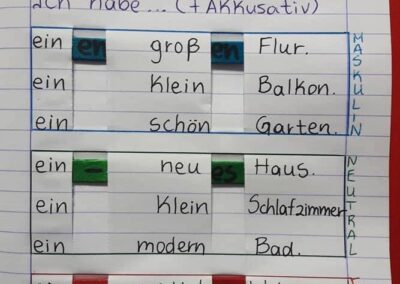 Ich habe... (+AKKusativ)
ein en groß en Flur.
ein Klein Balkon.
ein schön Garten.
MASKULIN
ein - neu es Haus.
ein Klein Schlafzimmer
ein modern Bad.
NEUTRAL